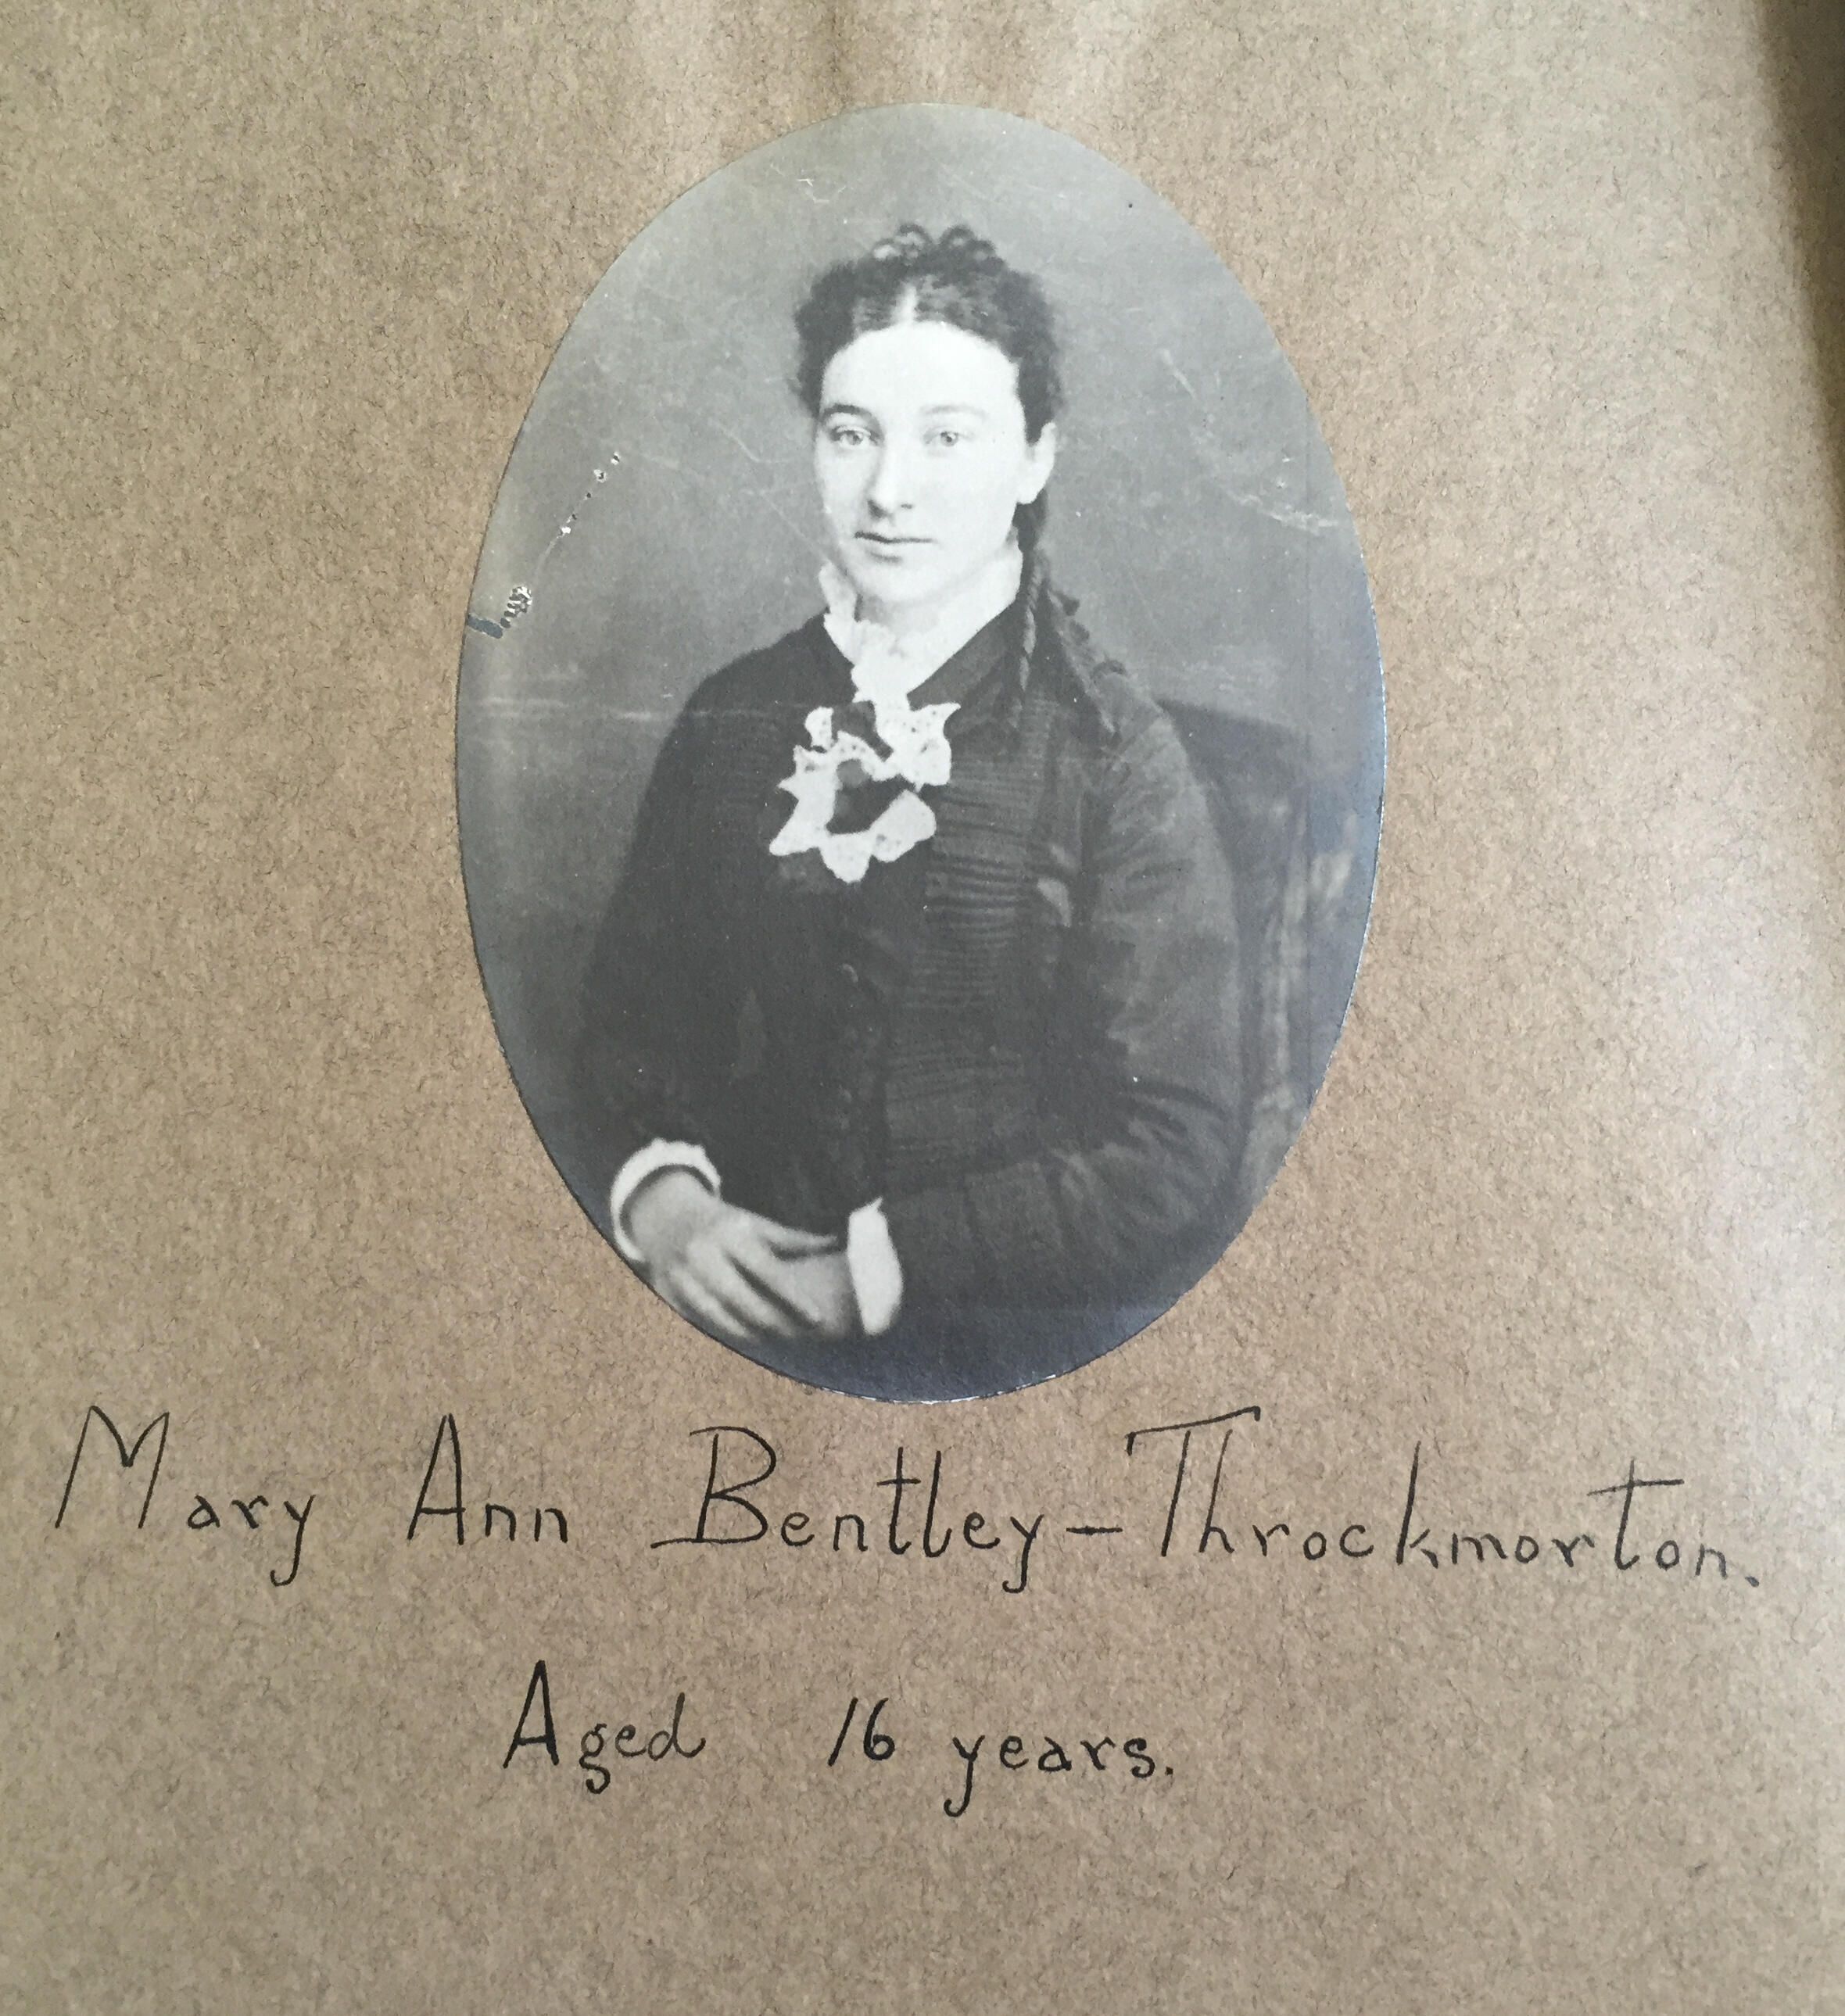 Mary Ann Bentley-Throckmorton.
Aged 16 years.